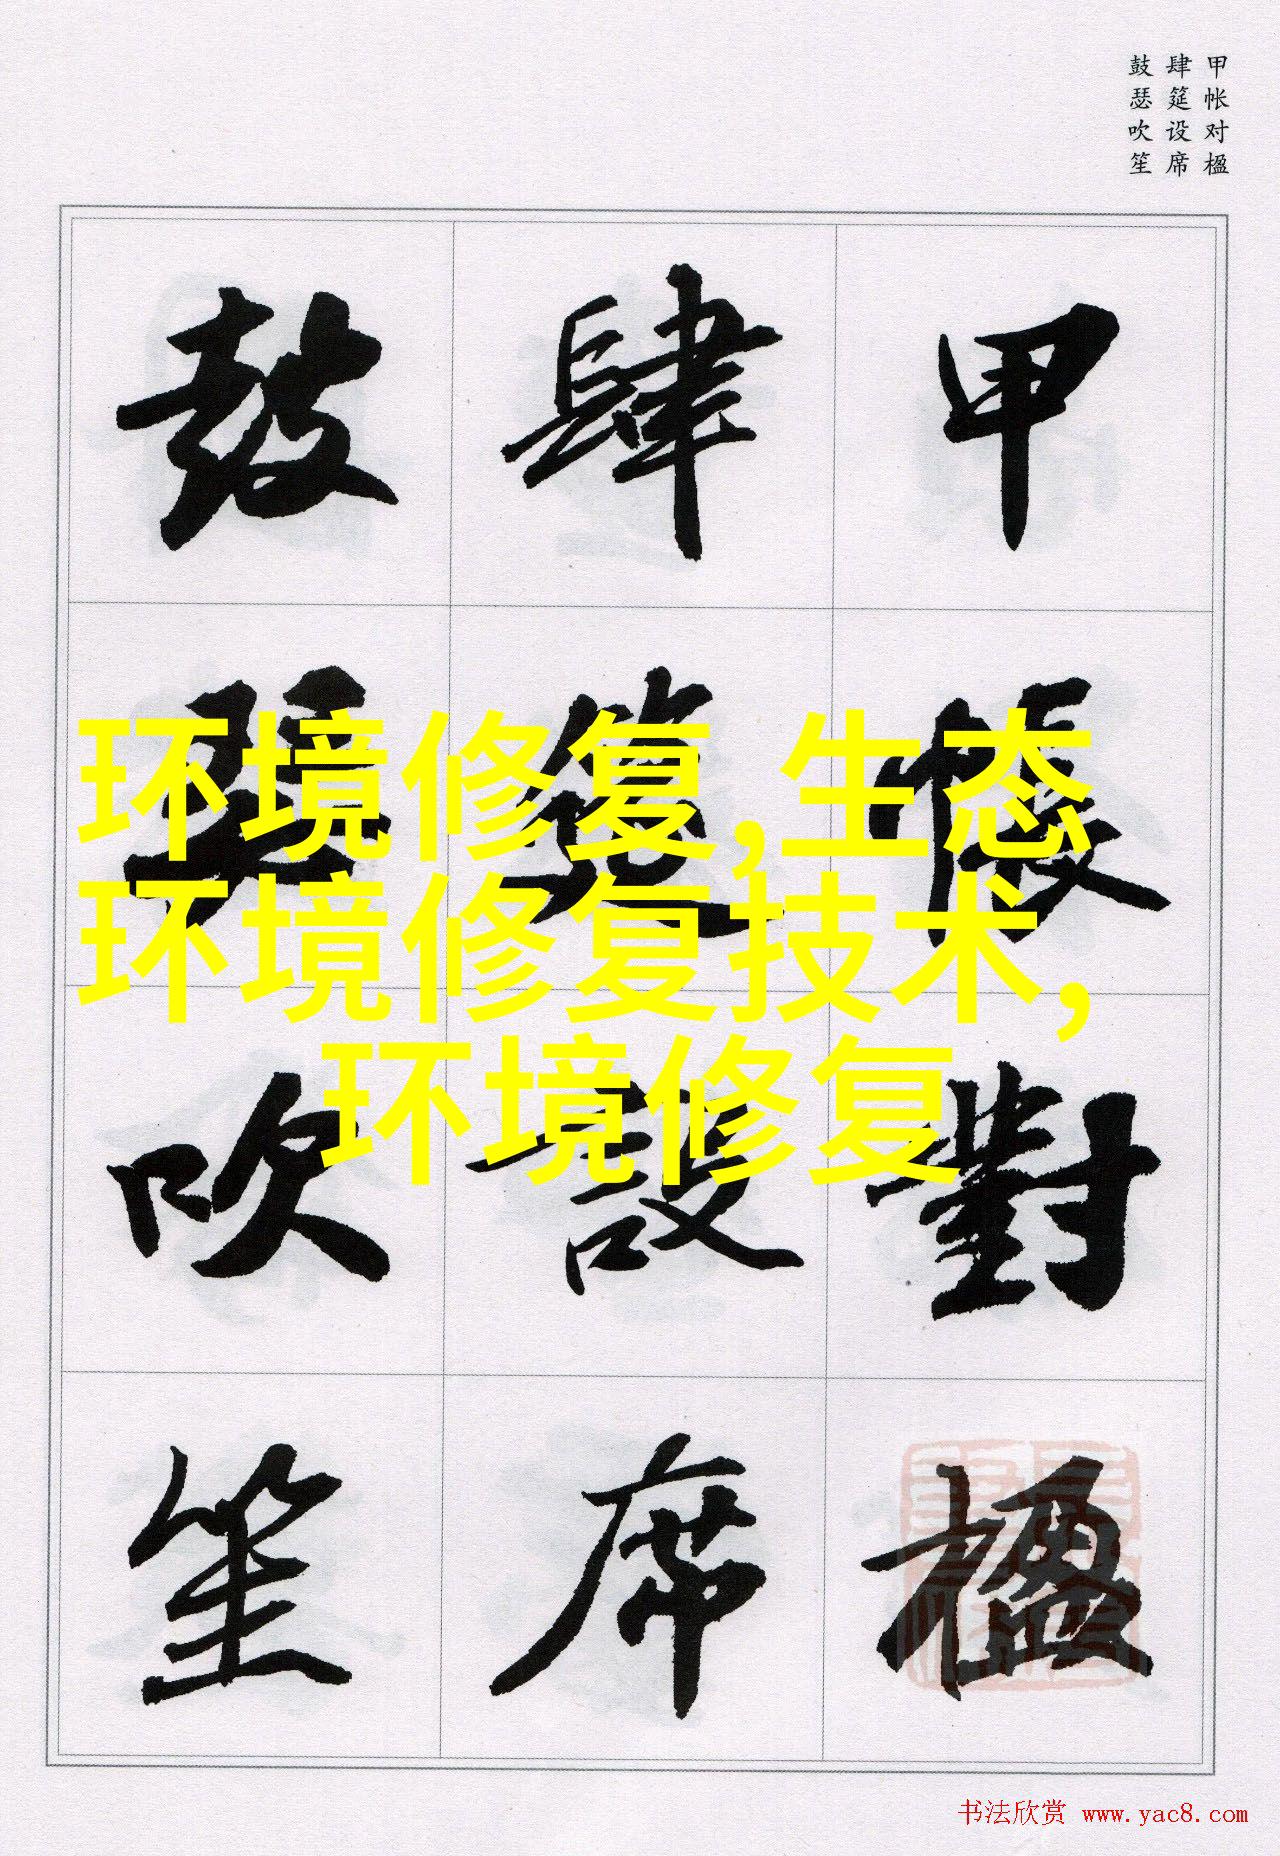 甲帐对楹
肆筵设席
鼓瑟吹笙
甲帳對楹
肆筵設席
鼓瑟吹笙
环境修复,生态
环境修复技术,
环境修复
书法欣赏 www.yac8.com